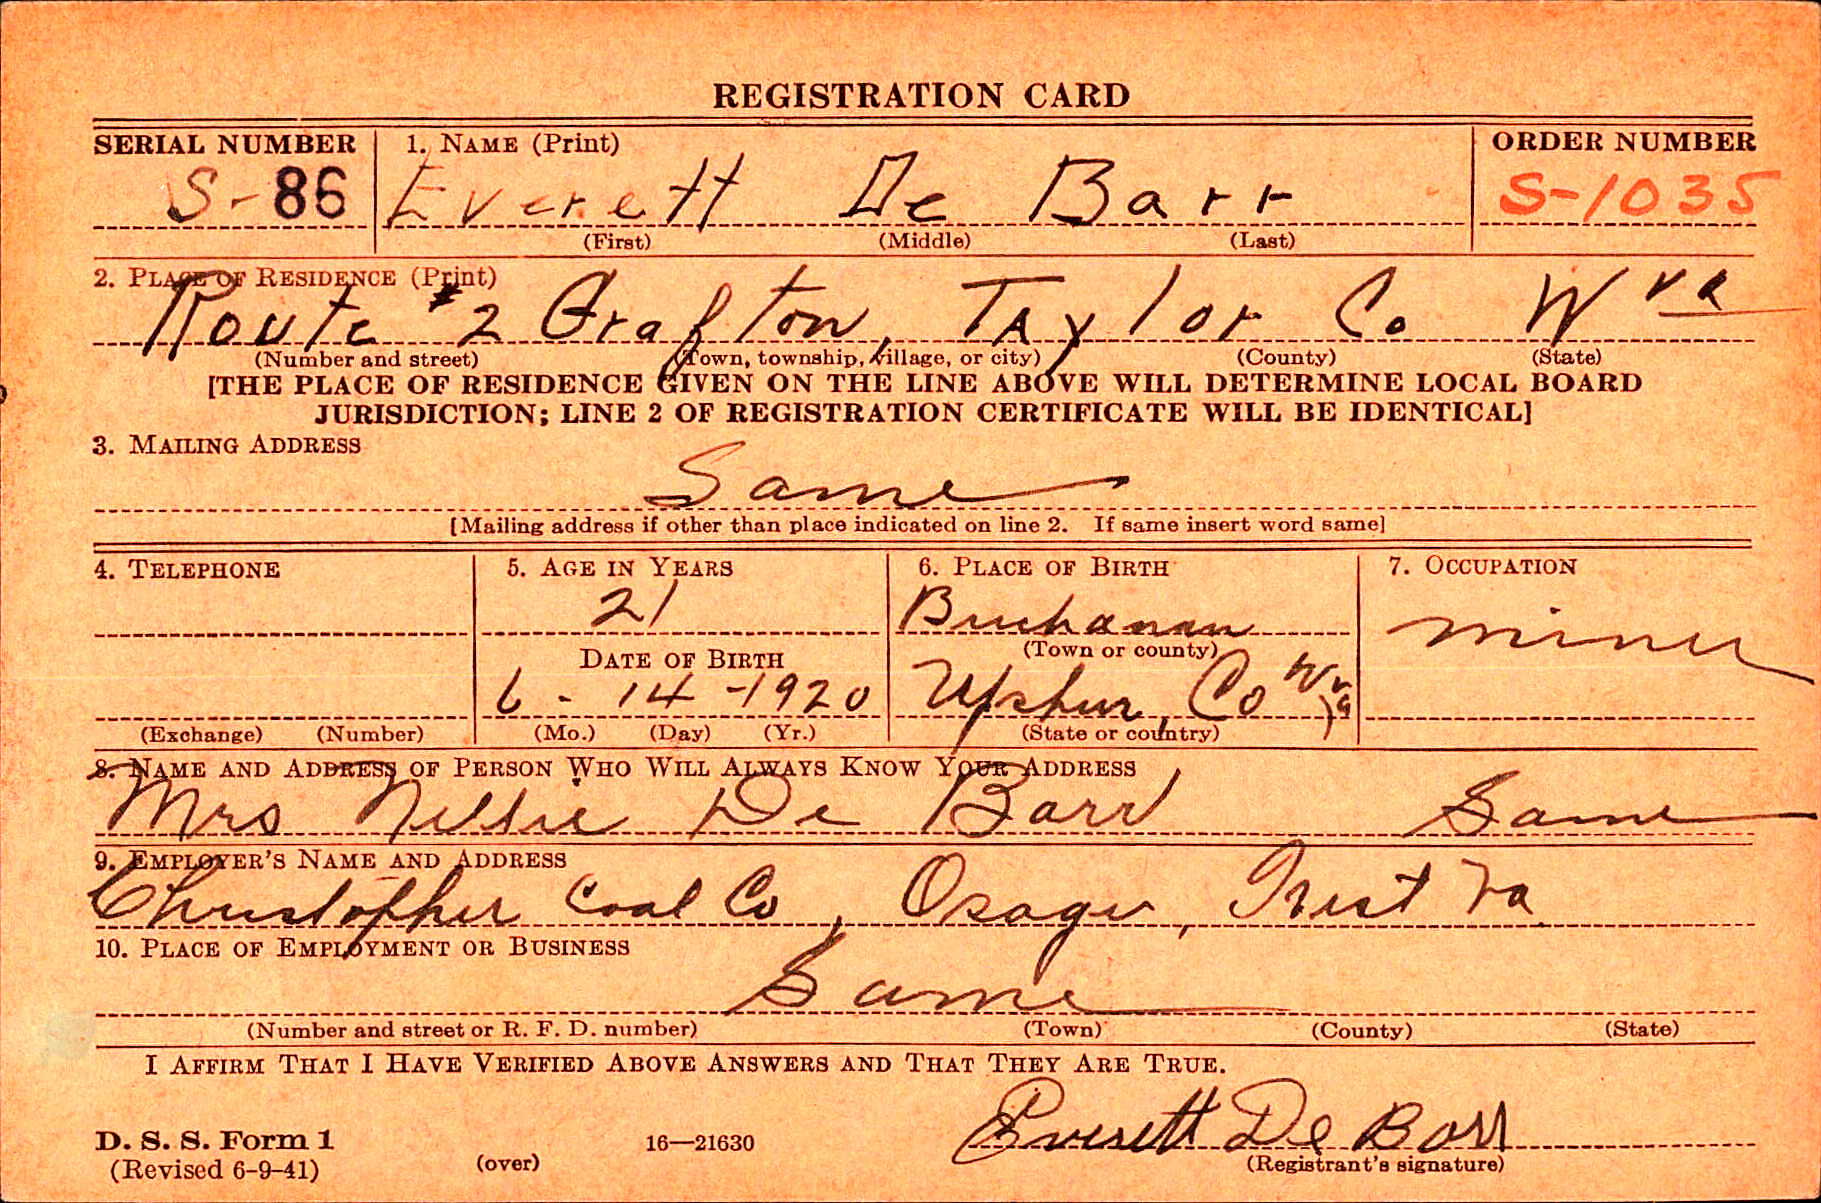 REGISTRATION CARD
SERIAL NUMBER 1. NAME (Print) ORDER NUMBER
S-86 Everett De Barr S-1035
(First) (Middle) (Last)
2. PLACE OF RESIDENCE (Print)
Route #2 Grafton, Taylor Co W va
(Number and street) (Town, township, village, or city) (County) (State)
[THE PLACE OF RESIDENCE GIVEN ON THE LINE ABOVE WILL DETERMINE LOCAL BOARD
JURISDICTION; LINE 2 OF REGISTRATION CERTIFICATE WILL BE IDENTICAL]
3. MAILING ADDRESS
Same
[Mailing address if other than place indicated on line 2. If same insert word same]
4. TELEPHONE 5. AGE IN YEARS 6. PLACE OF BIRTH 7. OCCUPATION
21 Buchanan miner
(Town or county)
DATE OF BIRTH
6 - 14 - 1920 Upshur, Co W va
(Exchange) (Number) (Mo.) (Day) (Yr.) (State or country)
8. NAME AND ADDRESS OF PERSON WHO WILL ALWAYS KNOW YOUR ADDRESS
Mrs Nellie De Barr Same
9. EMPLOYER'S NAME AND ADDRESS
Christopher Coal Co, Osage, West Va
10. PLACE OF EMPLOYMENT OR BUSINESS
Same
(Number and street or R. F. D. number) (Town) (County) (State)
I AFFIRM THAT I HAVE VERIFIED ABOVE ANSWERS AND THAT THEY ARE TRUE.
Everett De Barr
D. S. S. Form 1 16—21630
(Revised 6-9-41) (over) (Registrant's signature)